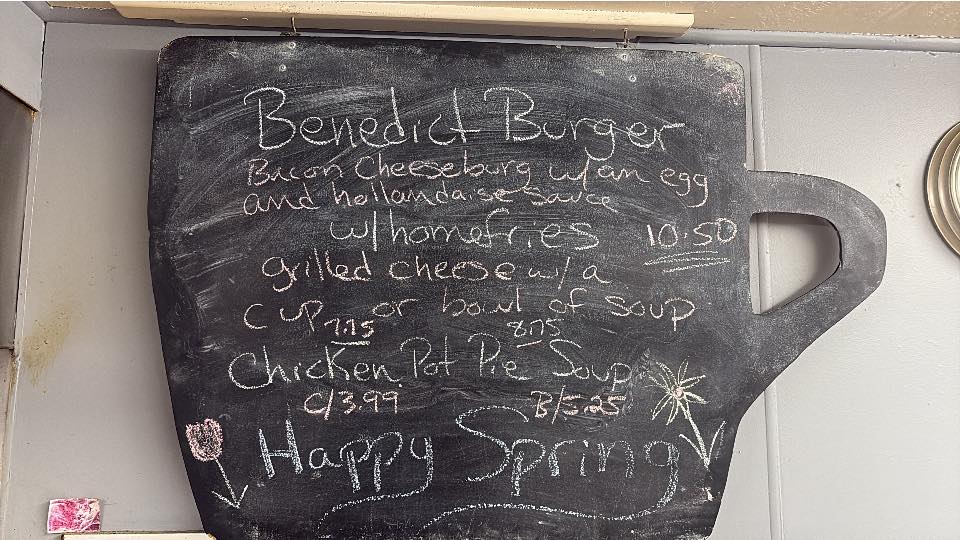 Benedict Burger
Bacon Cheeseburg w/an egg
and hollandaise sauce
w/homefries 10.50
grilled cheese w/ a
cup or bowl of soup
7.75 8.75
Chicken Pot Pie Soup
C/3.99 B/5.25
Happy Spring